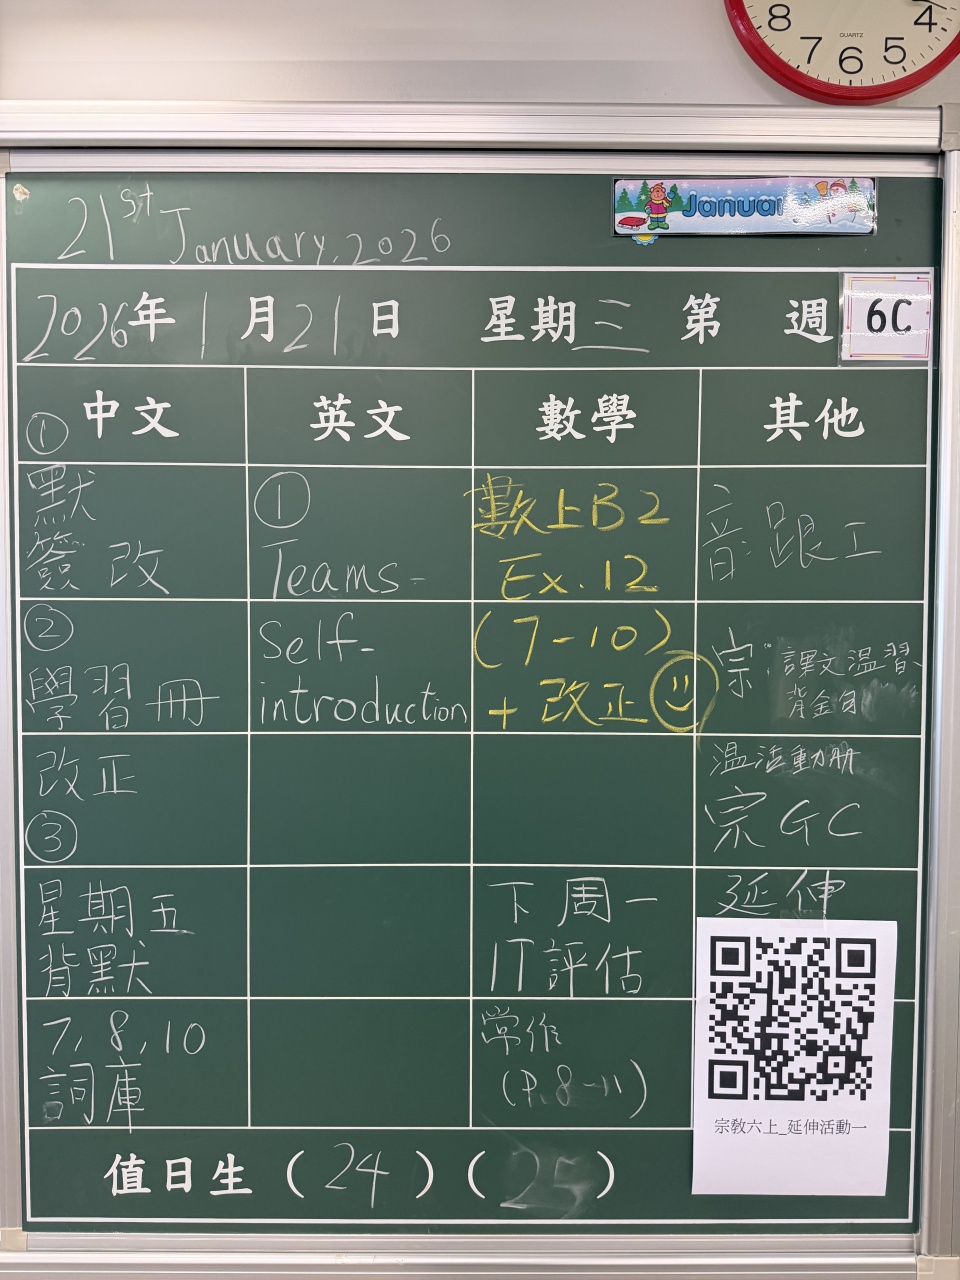 8 7 6 5 4
QUARTZ
21st January, 2026
Januar
2026年1月21日 星期三 第 週
6C
中文
①
默
簽改
②
學習冊
改正
③
星期五
背默
7, 8, 10
詞庫
英文
①
Teams-
Self-
introduction
數學
數上B2
Ex. 12
(7-10)
+ 改正
下周一
IT評估
常作
(P.8-11)
其他
音:跟工
宗:課文温習
背金句
温活動冊
宗GC
延伸
宗教六上_延伸活動一
值日生 (24) (25)